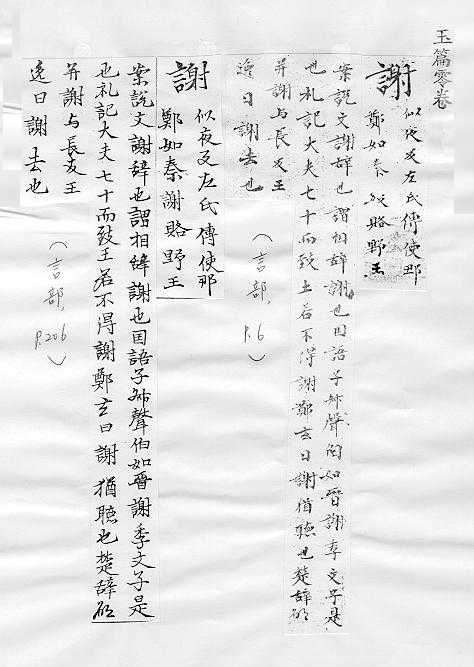 玉篇零卷
謝
似夜反左氏傳使那
鄭如秦謝賂野王
案說文謝辞也謂相辞謝也囯語子叔聲伯如晉謝季文子是
也礼記大夫七十而致王若不得謝鄭玄曰謝猶聽也楚辞願
并謝与長友王
逸曰謝去也
(言部, P.6)
謝
似夜反左氏傳使那
鄭如秦謝賂野王
案說文謝辞也謂相辞謝也囯語子叔聲伯如晉謝季文子是
也礼記大夫七十而致王若不得謝鄭玄曰謝猶聽也楚辞願
并謝与長友王
逸曰謝去也
(言部, P.206)